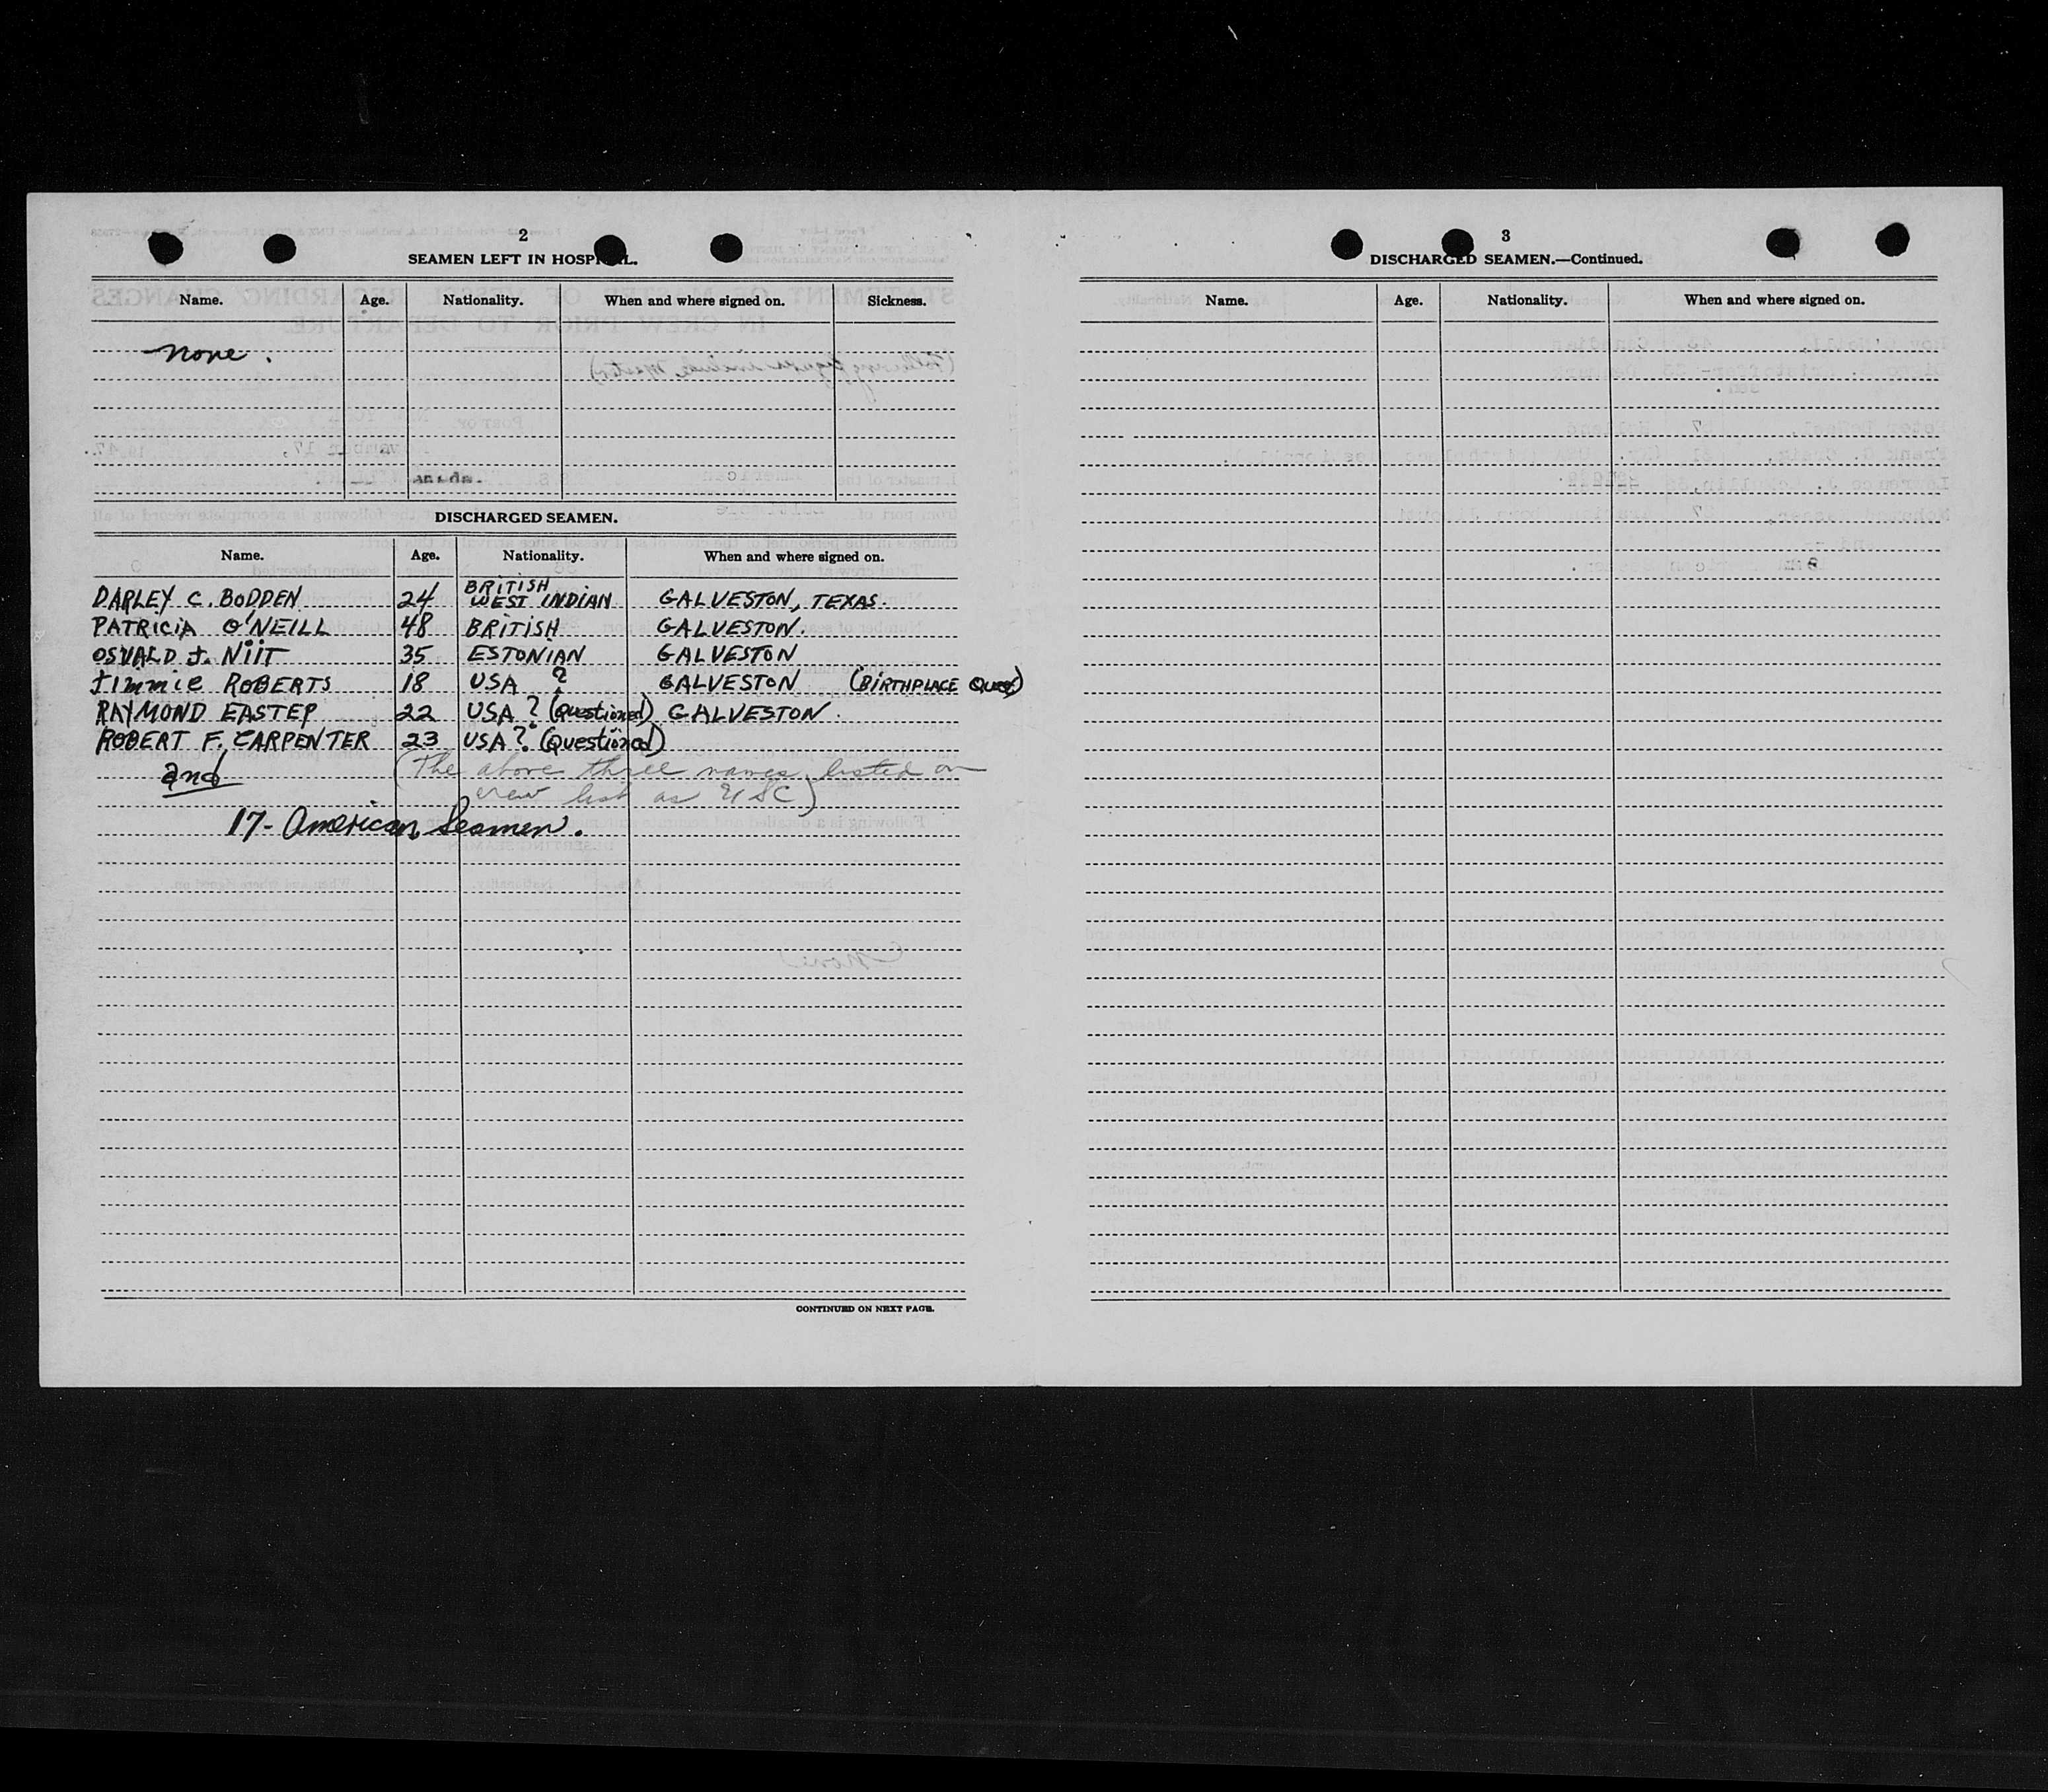 2
SEAMEN LEFT IN HOSPITAL.
Name. Age. Nationality. When and where signed on. Sickness.
None.
DISCHARGED SEAMEN.
Name. Age. Nationality. When and where signed on.
DARLEY C. BODDEN 24 BRITISH WEST INDIAN GALVESTON, TEXAS.
PATRICIA O'NEILL 48 BRITISH GALVESTON.
OSVALD J. NIIT 35 ESTONIAN GALVESTON
JIMMIE ROBERTS 18 USA ? GALVESTON (BIRTHPLACE Ques)
RAYMOND EASTEP 22 USA ? (Questioned) GALVESTON.
ROBERT F. CARPENTER 23 USA ?. (Questioned)
and (The above three names listed on
crew list as USC)
17- American Seamen.
CONTINUED ON NEXT PAGE.
3
DISCHARGED SEAMEN.—Continued.
Name. Age. Nationality. When and where signed on.